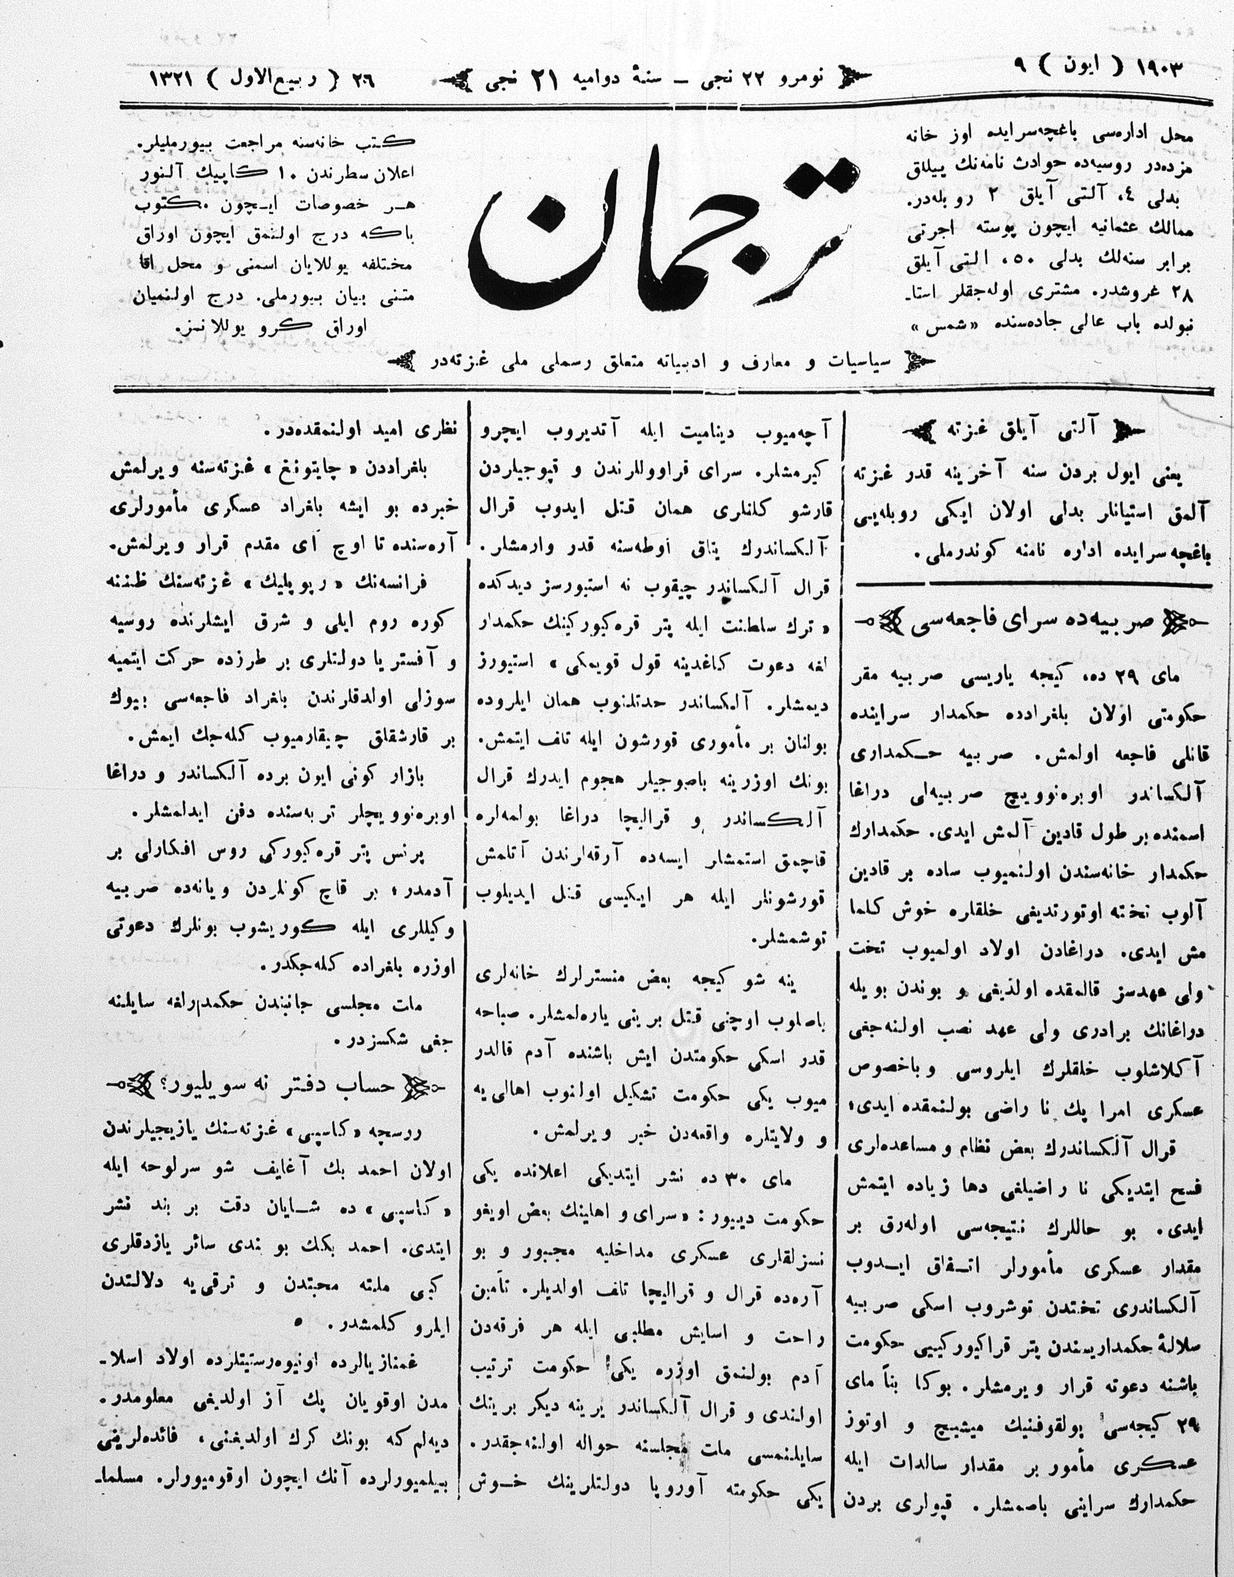 ١٩٠٣ ( ایون ) ٩
نومرو ٢٢ نجی ــ سنهٔ دوامیه ٢١ نجی
٢٦ ( ربیع‌الاول ) ١٣٢١
محل اداره‌سی باغچه‌سرایده اوز خانه
مزده‌در روسیه‌ده حوادث نامه‌نك ییللق
بدلی ٤، آلتی آیلق ٢ روبله‌در.
ممالك عثمانیه ایچون پوسته اجرتی
برابر سنه‌لك بدلی ٥٠، التی آیلق
٢٨ غروشدر. مشتری اوله‌جقلر استا۔
نبولده باب عالی جاده‌سنده «شمس»
ترجمان
كتب خانه‌سنه مراجعت بیورملیلر.
اعلان سطرندن ١٠ كاپیك آلنور
هر خصوصات ایچون مكتوب
باكه درج اولنمق ایچون اوراق
مختلفه یوللایان اسمنی و محل اقا
متنی بیان بیورملی. درج اولنمیان
اوراق كرو یوللانمز.
سیاسیات و معارف و ادبیاته متعلق رسملی ملی غزته‌در
آلتی آیلق غزته
یعنی ایول بردن سنه آخرینه قدر غزته
آلمق استیانلر بدلی اولان ایكی روبله‌یی
باغچه‌سرایده اداره نامنه كوندرملی.
صربیه‌ده سرای فاجعه‌سی
مای ٢٩ ده، كیجه یاریسی صربیه مقر
حكومتی اولان بلغرادده حكمدار سراینده
قانلی فاجعه اولمش. صربیه حكمداری
آلكساندر اوبره‌نوویچ صربیه‌لی دراغا
اسمنده بر طول قادین آلمش ایدی. حكمدارك
حكمدار خانه‌سندن اولنمیوب ساده بر قادین
آلوب تخته اوتورتدیغی خلقلره خوش كلما
مش ایدی. دراغادن اولاد اولمیوب تخت
ولی عهدسز قالمقده اولدیغی و بوندن بویله
دراغانك برادری ولی عهد نصب اولنه‌جغی
آكلاشلوب خلقلرك ایلروسی و باخصوص
عسكری امرا پك نا راضی بولنمقده ایدی؛
قرال آلكساندرك بعض نظام و مساعده‌لری
فسخ ایتدیكی نا راضیلغی دها زیاده ایتمش
ایدی. بو حاللرك نتیجه‌سی اوله‌رق بر
مقدار عسكری مأمورلر اتفاق ایدوب
آلكساندری تختدن توشروب اسكی صربیه
سلالهٔ حكمداریسندن پتر قراكیوركییی حكومت
باشنه دعوته قرار ویرمشلر. بوكا بناً مای
٢٩ كیجه‌سی پولقوفنیك میشیچ و اوتوز
عسكری مأمور بر مقدار سالدات ایله
حكمدارك سراینی باصمشلر. قپولری بردن
آچه‌میوب دینامیت ایله آتدیروب ایچرو
كیرمشلر. سرای قراووللرندن و قپوجیلردن
قارشو كلنلری همان قتل ایدوب قرال
آلكساندرك یتاق اوطه‌سنه قدر وارمشلر.
قرال آلكساندر چیقوب نه استیورسز دیدكده
«ترك سلطنت ایله پتر قره‌كیوركینك حكمدار
لغه دعوت كاغدینه قول قویمكی» استیورز
دیمشلر. آلكساندر حدتلنوب همان ایلروده
بولنان بر مأموری قورشون ایله تلف ایتمش.
بونك اوزرینه باصوجیلر هجوم ایدرك قرال
آلكساندر و قرالیچا دراغا بولمه‌لره
قاچمق استمشلر ایسه‌ده آرقه‌لرندن آتلمش
قورشونلر ایله هر ایكیسی قتل ایدیلوب
توشمشلر.
ینه شو كیجه بعض منسترلرك خانه‌لری
باصلوب اوچنی قتل برینی یاره‌لمشلر. صباحه
قدر اسكی حكومتدن ایش باشنده آدم قالدر
میوب یكی حكومت تشكیل اولنوب اهالی‌یه
و ولایتلره واقعه‌دن خبر ویرلمش.
مای ٣٠ ده نشر ایتدیكی اعلانده یكی
حكومت دیییور: «سرای و اهلینك بعض اویغو
نسزلقلری عسكری مداخلیه مجبور و بو
آره‌ده قرال و قرالیچا تلف اولدیلر. تأمین
راحت و اسایش مطلبی ایله هر فرقه‌دن
آدم بولنمق اوزره یكی حكومت ترتیب
اولندی و قرال آلكساندر یرینه دیكر برینك
سایلنمسی ملت مجلسنه حواله اولنه‌جقدر.
یكی حكومته آوروپا دولتلرینك خوش
نظری امید اولنمقده‌در.
بلغراددن «چایتونغ» غزته‌سنه ویرلمش
خبرده بو ایشه بلغراد عسكری مأمورلری
آره‌سنده تا اوچ آی مقدم قرار ویرلمش.
فرانسه‌نك «رپوپلیك» غزته‌سنك ظننه
كوره روم ایلی و شرق ایشلرنده روسیه
و آفستریا دولتلری بر طرزده حركت ایتمیه
سوزلی اولدقلرندن بلغراد فاجعه‌سی بیوك
بر قارشقلق چیقارمیوب كله‌جك ایمش.
بازار كونی ایون برده آلكساندر و دراغا
اوبره‌نوویچلر تربه‌سنده دفن ایدلمشلر.
پرنس پتر قره‌كیوركی روس افكارلی بر
آدمدر؛ بر قاچ كونلردن ویانه‌ده صربیه
وكیللری ایله كوریشوب بونلرك دعوتی
اوزره بلغراده كله‌جكدر.
ملت مجلسی جانبندن حكمدارلغه سایلنه
جغی شكسزدر.
حساب دفتر نه سویلیور؟
روسچه «كاسپی» غزته‌سنك یازیجیلرندن
اولان احمد بك آغایف شو سرلوحه ایله
«كاسپی» ده شایان دقت بر بند نشر
ایتدی. احمد بكك بو بندی سائر یازدقلری
كبی ملته محبتدن و ترقی‌یه دلالتدن
ایلرو كلمشدر.
غمنازیالرده اونیوه‌رستیتلرده اولاد اسلا۔
مدن اوقویان پك آز اولدیغی معلومدر.
دیه‌لم كه بونك كرك اولدیغنی، فائده‌لریغی
بیلمیورلرده آنك ایچون اوقومیورلر. مسلما۔